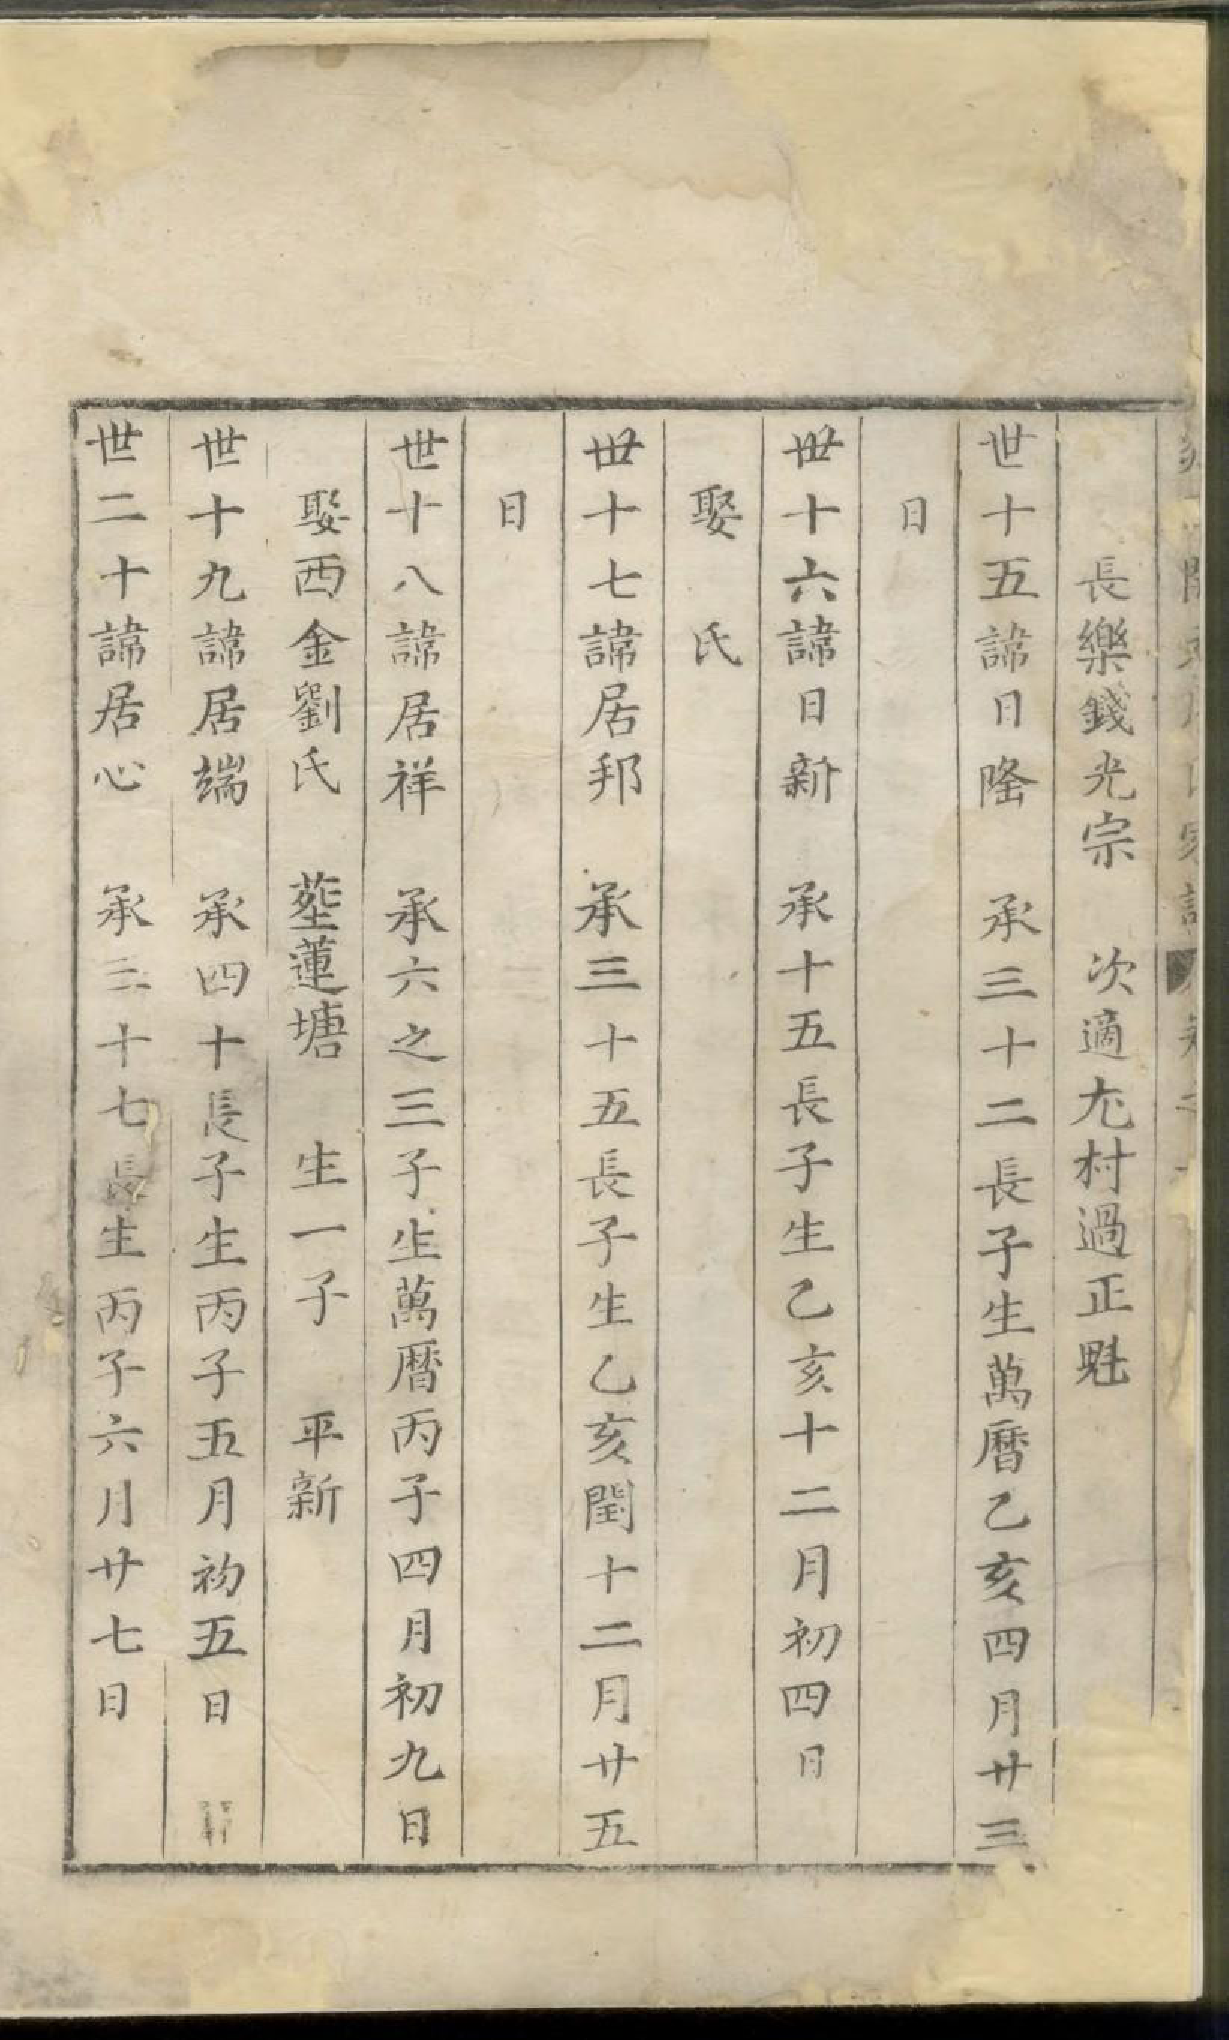 長樂錢光宗　次適尤村過正魁
世十五諱日隆　承三十二長子生萬曆乙亥四月廿三
日
世十六諱日新　承十五長子生乙亥十二月初四日
娶　氏
世十七諱居邦　承三十五長子生乙亥閏十二月廿五
日
世十八諱居祥　承六之三子生萬曆丙子四月初九日
娶西金劉氏　塟蓮塘　生一子　平新
世十九諱居端　承四十長子生丙子五月初五日
世二十諱居心　承三十七長生丙子六月廿七日